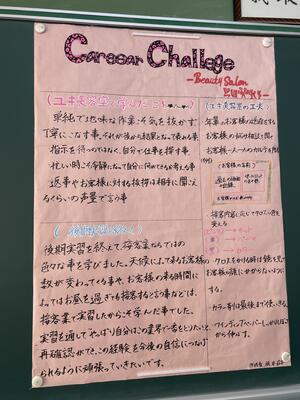 Careear Challege
-Beauty Salon
(ユキ美容室で学んだこと
単純で地味な作業こそ気を抜かず
丁寧にこなす事。それが後から結果となって表れる事
指示を待つのではなく、自分で仕事を探す事。
忙しい時こそ冷静になって自分に何ができるか考える事
返事やお客様に対する挨拶は相手に聞こ
えるくらいの声量で言う事
後期実習を終えて
後期実習を終えて、接客業ならではの
色々な事を学びました。天候によって来るお客様の
数が変わってくる事や、お客様の来る時間に
よってはお昼を過ぎても接客すると言う事などは、
接客業で実習したからこそ学んだ事でした。
実習を通してやっぱり自分はこの業界で働きたいと
再確認ができ、この経験を今後の自信につなげ
られるように頑張っていきたいです。
(ユキ美容室の工夫)
お客様の
お客様一人一人のカルテを作成
(例)
お客様の名前
接客内容に応じてクロスの色を
変える
カット
パーマ
カラー
・クロスをかける時は髪を
お客様の顔にかからないように
する。
・カラー剤は最後まで使いきる。
・ワインディングペーパーもしわをのば
から伸ばす。